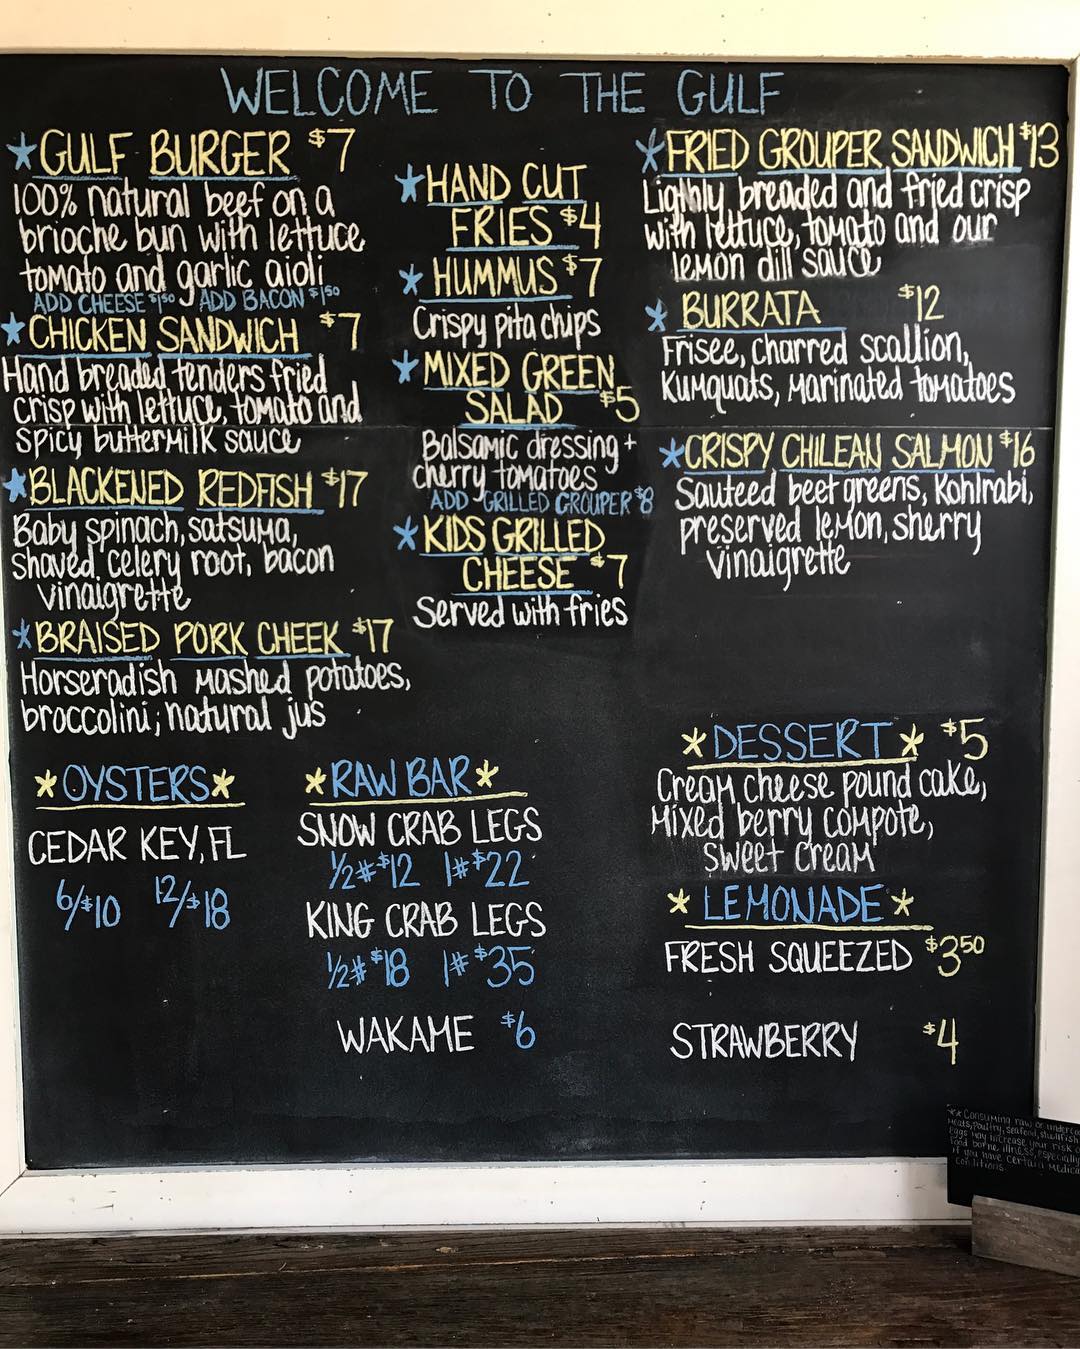 WELCOME TO THE GULF
GULF BURGER $7
100% natural beef on a
brioche bun with lettuce
tomato and garlic aioli
ADD CHEESE $1.50 ADD BACON $1.50
CHICKEN SANDWICH $7
Hand breaded tenders fried
crisp with lettuce, tomato and
spicy buttermilk sauce
BLACKENED REDFISH $17
Baby spinach, satsuma,
shaved celery root, bacon
vinaigrette
BRAISED PORK CHEEK $17
Horseradish mashed potatoes,
broccolini, natural jus
HAND CUT
FRIES $4
HUMMUS $7
Crispy pita chips
MIXED GREEN
SALAD $5
Balsamic dressing +
cherry tomatoes
ADD GRILLED GROUPER $8
KIDS GRILLED
CHEESE $7
Served with fries
FRIED GROUPER SANDWICH $13
Ligthly breaded and fried crisp
with lettuce, tomato and our
lemon dill sauce
BURRATA $12
Frisee, charred scallion,
Kumquats, marinated tomatoes
CRISPY CHILEAN SALMON $16
Sauteed beet greens, Kohlrabi,
preserved lemon, sherry
vinaigrette
*OYSTERS*
CEDAR KEY, FL
6/$10 12/$18
*RAW BAR*
SNOW CRAB LEGS
1/2# $12 1# $22
KING CRAB LEGS
1/2# $18 1# $35
WAKAME $6
*DESSERT* $5
Cream cheese pound cake,
Mixed berry compote,
sweet cream
*LEMONADE*
FRESH SQUEEZED $3.50
STRAWBERRY $4
** Consuming raw or
meats, poultry, seafood, shellfish
eggs may increase your risk
food borne illness, especially
if you have certain
conditions.